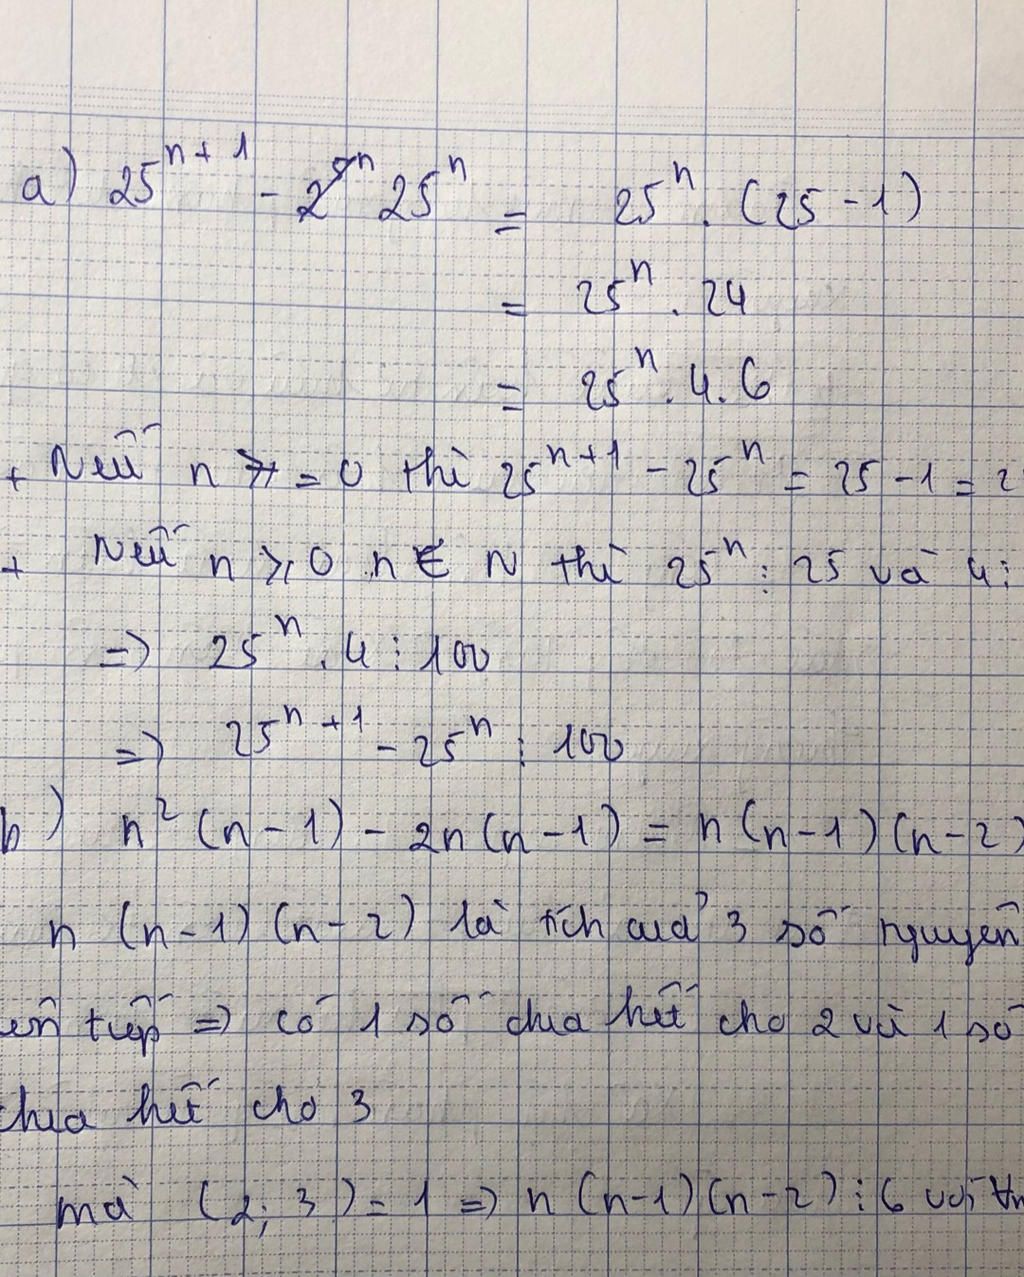 a) 25^{n+1} - 25^n = 25^n . (25 - 1)
= 25^n . 24
= 25^n . 4 . 6
+ Nếu n = 0 thì 25^{n+1} - 25^n = 25 - 1 = 2
+ Nếu n ≥ 0 n ∈ N thì 25^n ⋮ 25 và 4 ⋮
=> 25^n . 4 ⋮ 100
=> 25^{n+1} - 25^n ⋮ 100
b) n² (n - 1) - 2n (n - 1) = n (n - 1) (n - 2)
n (n - 1) (n - 2) là tích của 3 số nguyên
ên tiếp => có 1 số chia hết cho 2 và 1 số
chia hết cho 3
mà (2; 3) = 1 => n (n - 1) (n - 2) ⋮ 6 với ∀n